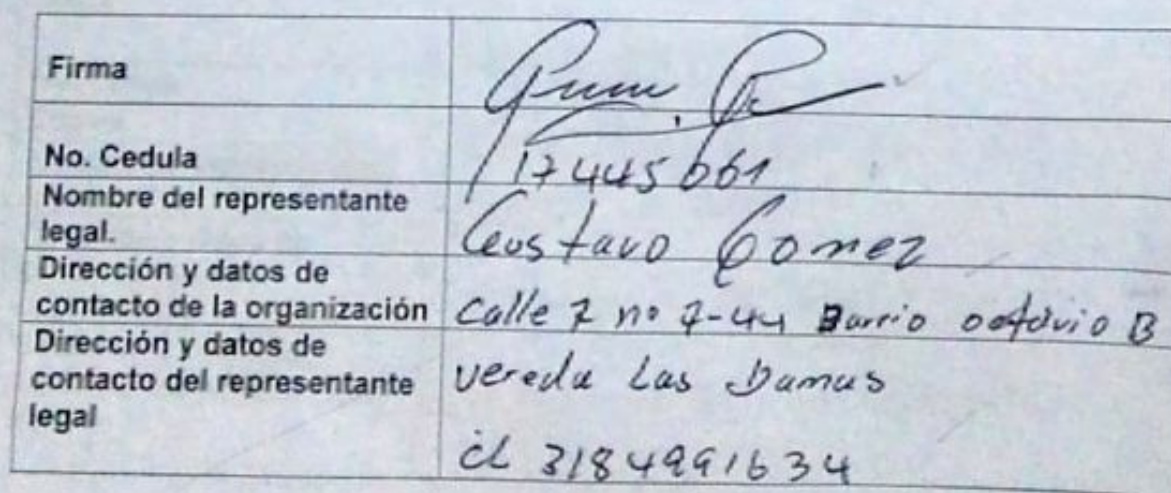 Firma
No. Cedula
17445661
Nombre del representante
legal.
Gustavo Gomez
Dirección y datos de
contacto de la organización
Calle 7 no 7-44 Barrio octavio B
Dirección y datos de
contacto del representante
legal
vereda Las Damas
cl 3184991634